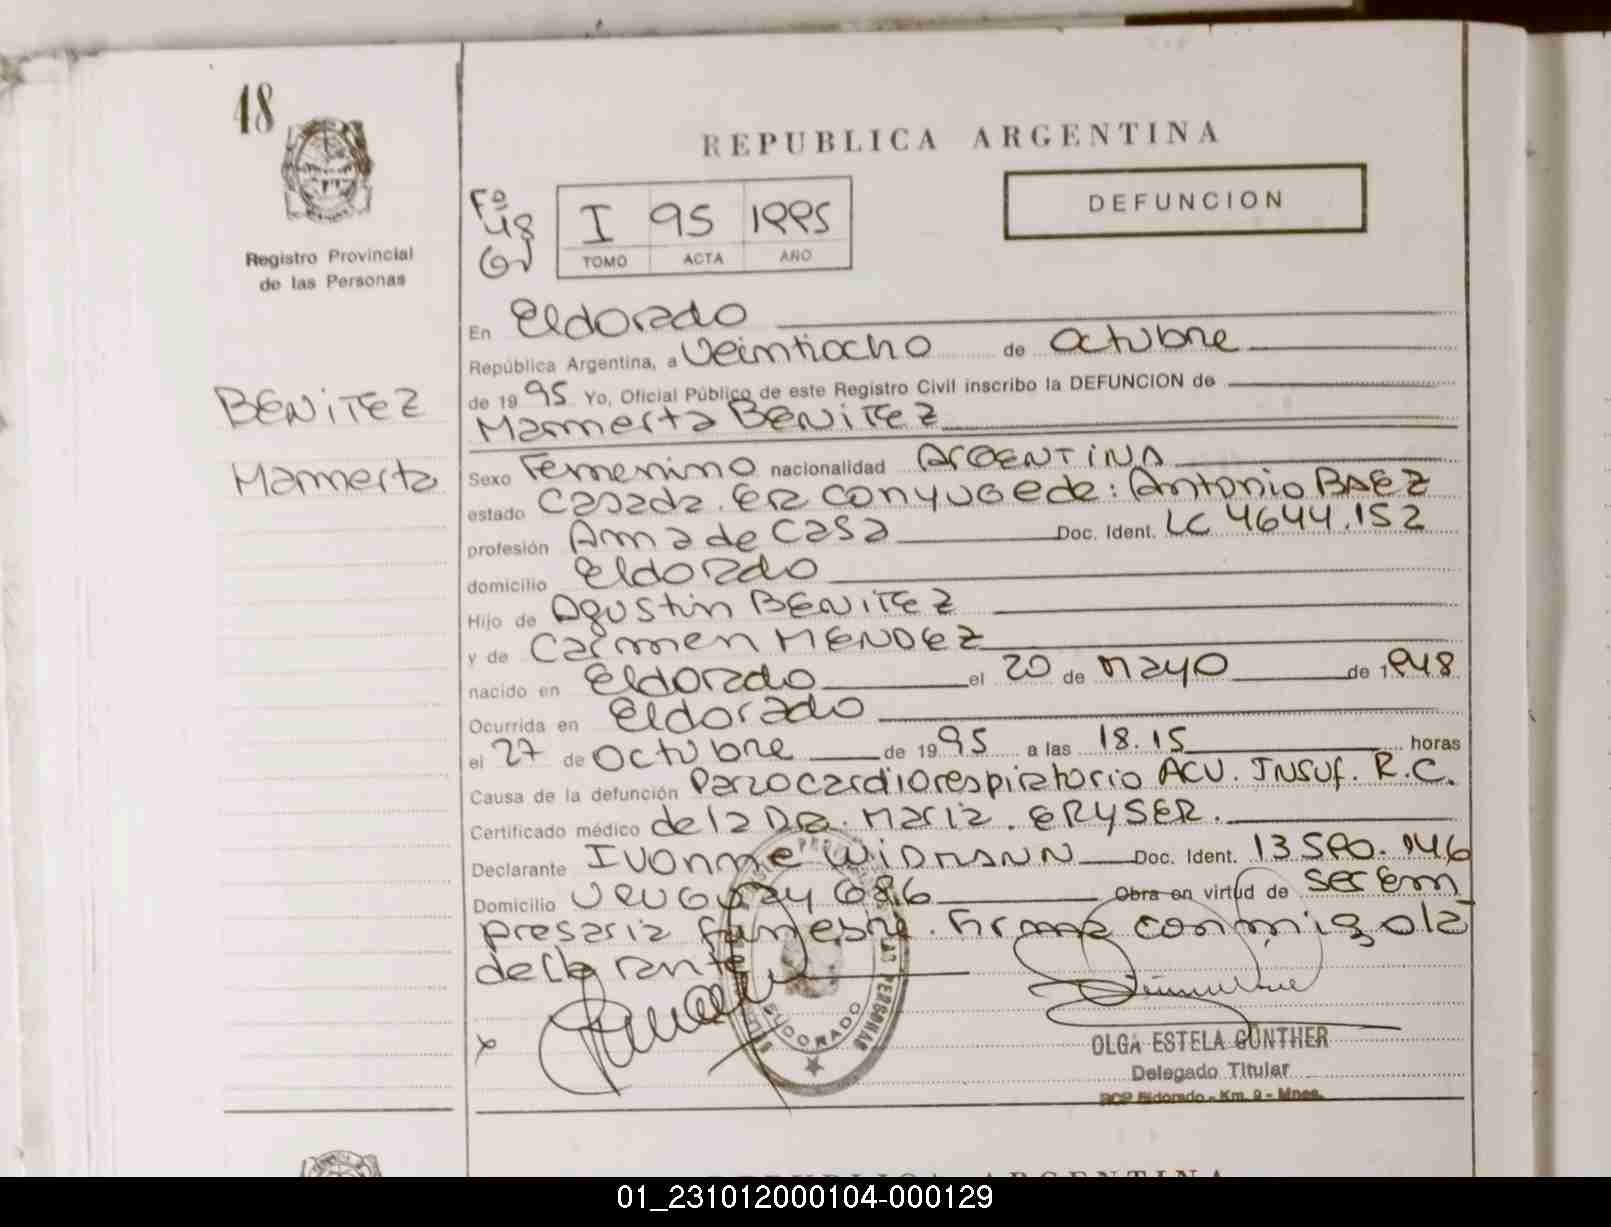 48
REPUBLICA ARGENTINA
Registro Provincial
de las Personas
Fº
48
I 95 1995
TOMO ACTA AÑO
DEFUNCION
En Eldorado
República Argentina, a Veintiocho de Octubre
de 19 95 Yo, Oficial Público de este Registro Civil inscribo la DEFUNCION de
BENITEZ
Mamerta
Mamerta BENITEZ
Sexo Femenino nacionalidad ARGENTINA
estado Casada. ER conyugede: Antonio BAEZ
profesión Ama de Casa Doc. Ident. LC 4644.152
domicilio Eldorado
Hijo de Agustin BENITEZ
y de Carmen MENDEZ
nacido en Eldorado el 20 de Mayo de 1948
Ocurrida en Eldorado
el 27 de Octubre de 19 95 a las 18.15 horas
Causa de la defunción Parocardiorespiratorio ACU. INSUF. R.C.
Certificado médico de la DRA. Maria. ERYSER.
Declarante Ivonne WIDMANN Doc. Ident.
Domicilio URUGUAY 686 Obra en virtud de ser Em
presaria funebre. Firma conmigo la
declarante
x
ELDORADO
OLGA ESTELA GÜNTHER
Delegado Titular
RCP Eldorado - Km. 9 - Mnes.
REPUBLICA ARGENTINA
01_231012000104-000129